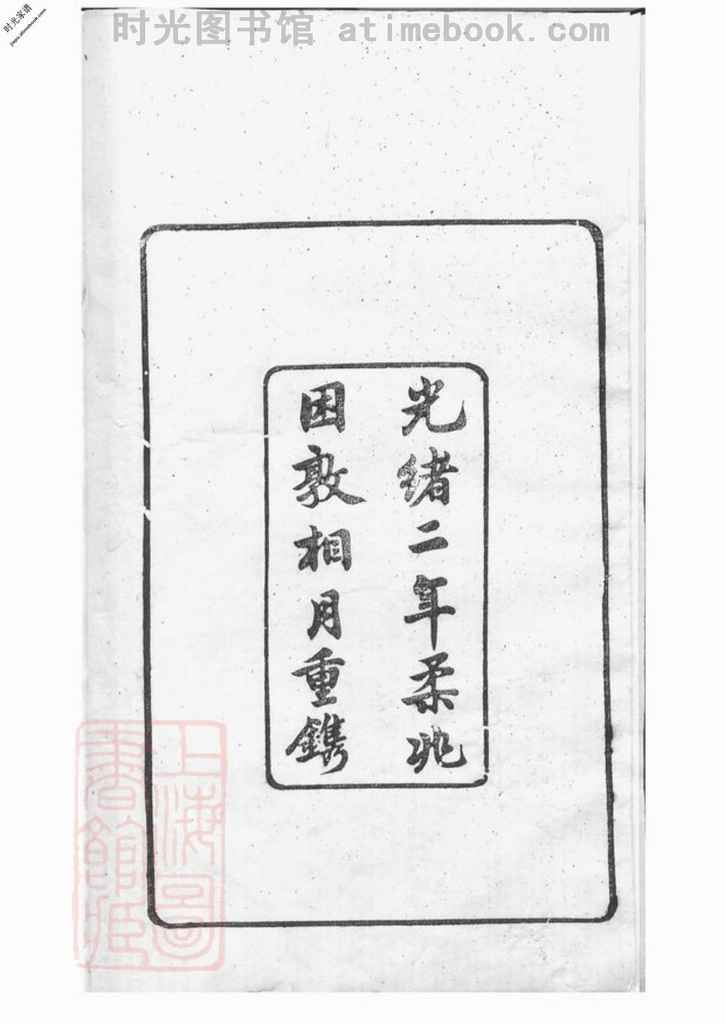 时光图书馆 atimebook.com
时光家谱
光绪二年柔兆
困敦相月重鐫
上海圖
書館藏